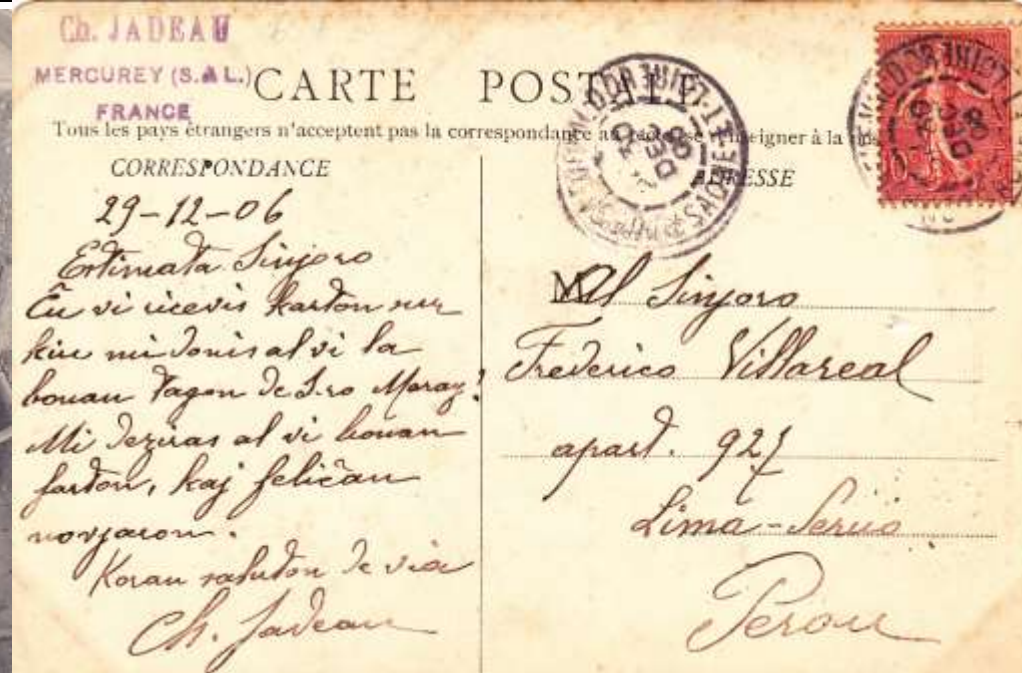 Ch. JADEAU
MERCUREY (S.&L.)
FRANCE
CARTE POSTALE
Tous les pays étrangers n'acceptent pas la correspondance au recto se renseigner à la
CORRESPONDANCE
ADRESSE
29-12-06
Estimata Sinjoro
Ĉu vi ricevis karton sur
kiu mi donis al vi la
bonan tagon de S-ro Moray?
Mi deziras al vi bonan
farton, kaj feliĉan
novjaron.
Koran saluton de via
Ch. Jadeau
M
Al Sinjoro
Frederico Villareal
apart. 927
Lima-Peruo
Perou
SAONE-ET-LOIRE
30
DEC
06